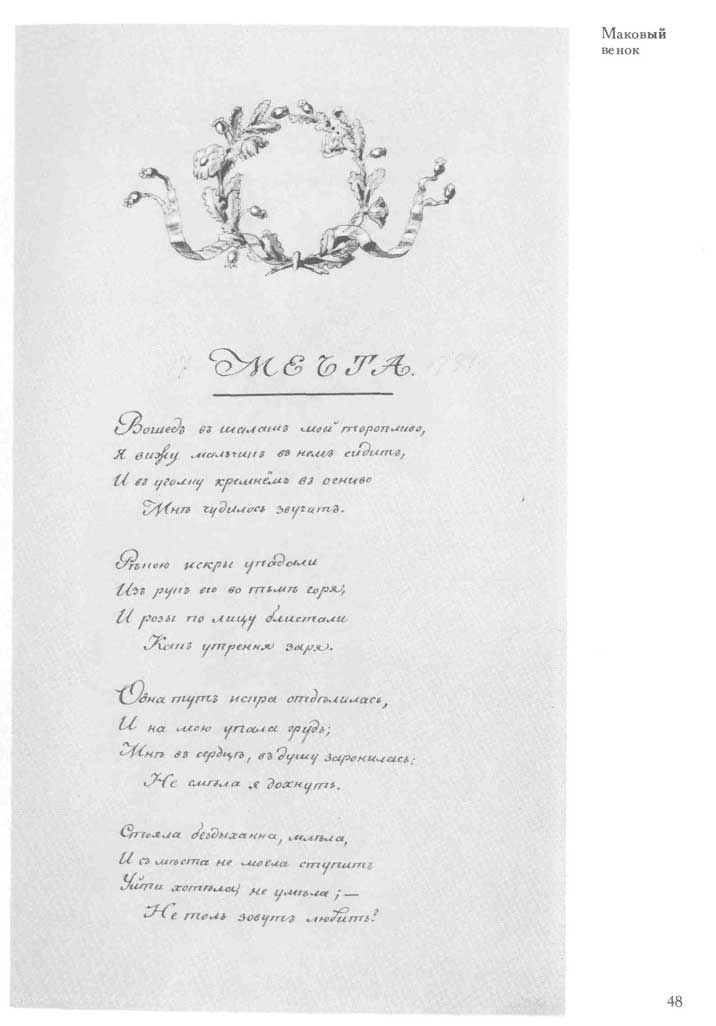 Маковый
венок
МЕЧТА.
Вошедъ въ шалашъ мой торопливо,
Я вижу мальчикъ въ немъ сидитъ,
И въ уголку кремнёмъ въ огниво
Мнѣ чудилось звучитъ.
Рѣкою искры упадали
Изъ рукъ его во тьмѣ горя,
И розы по лицу блистали
Какъ утрення заря.
Одна тутъ искра отдѣлилась,
И на мою упала грудь;
Мнѣ въ сердцѣ, въ душу заронилась:
Не смѣла я дохнуть.
Стояла бездыханна, млѣла,
И съ мѣста не могла ступить
Уйти хотѣла, не умѣла; —
Не толь зовутъ любить?
48